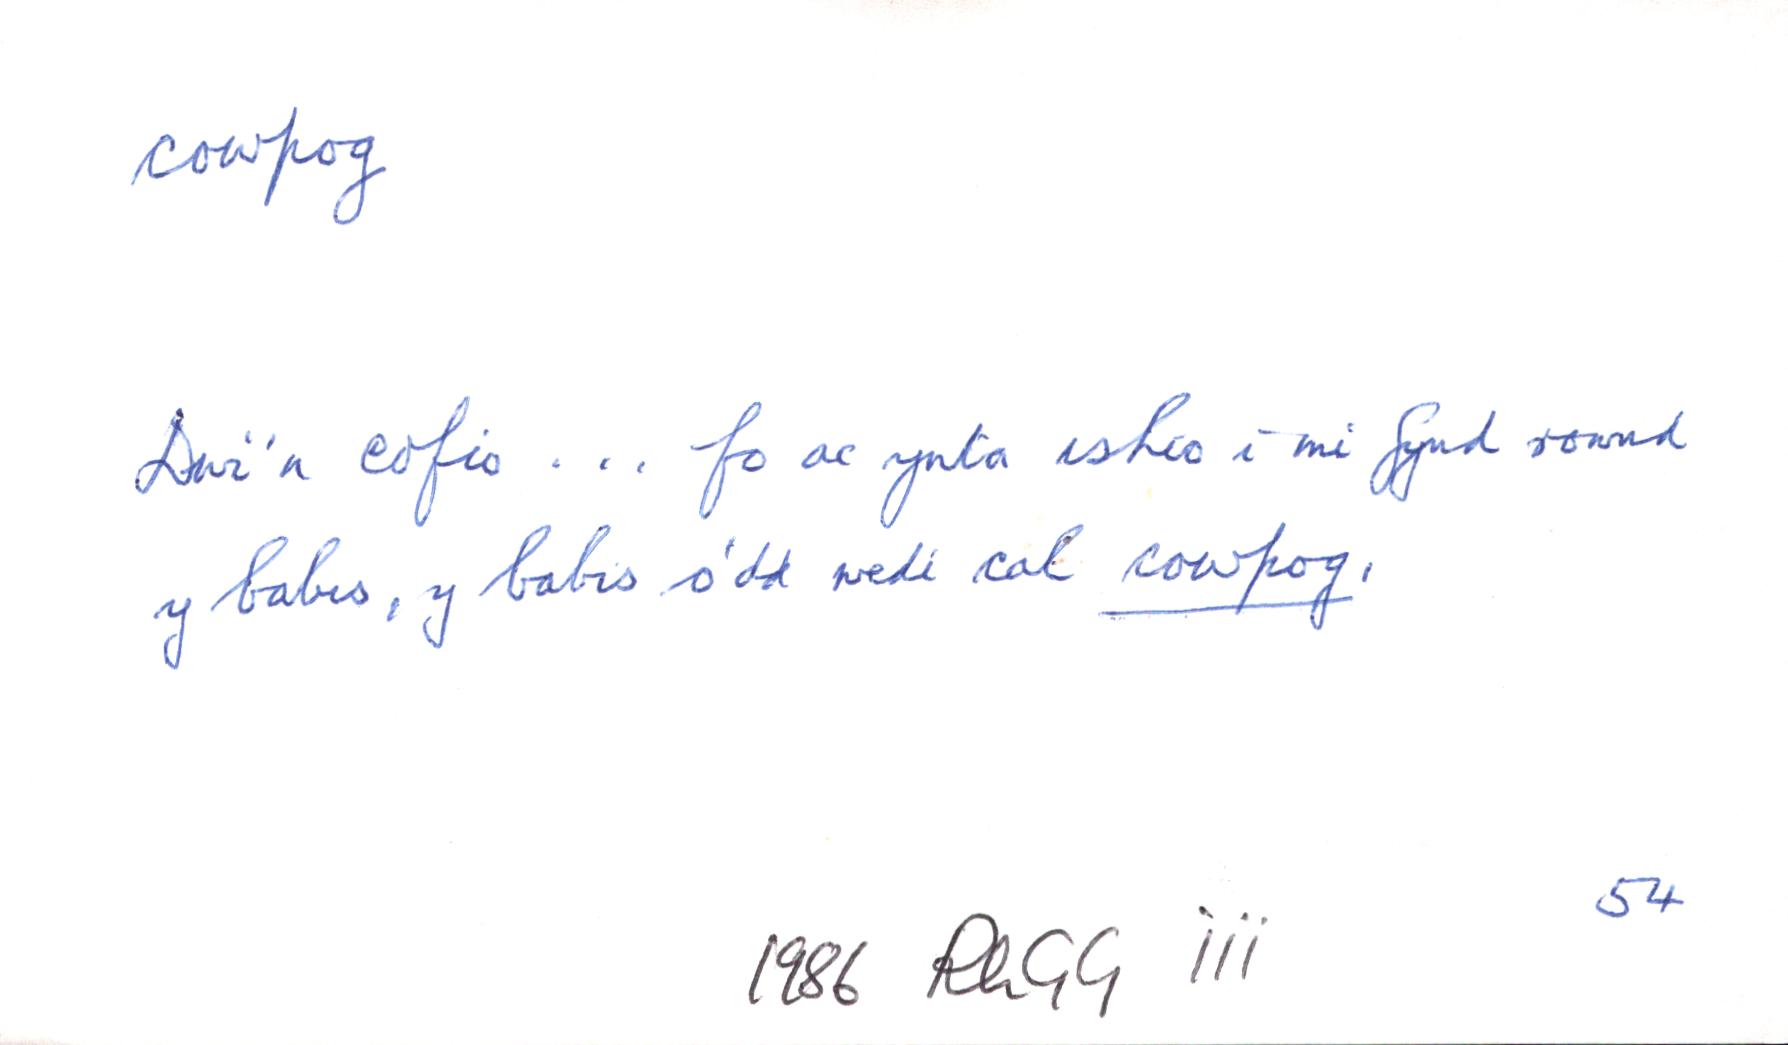 cowpog
Dwi'n cofio ... fo ac ynta isheo i mi fynd rownd
y babis, y babis o'dd wedi cal cowpog.
54
1986 RhGG iii